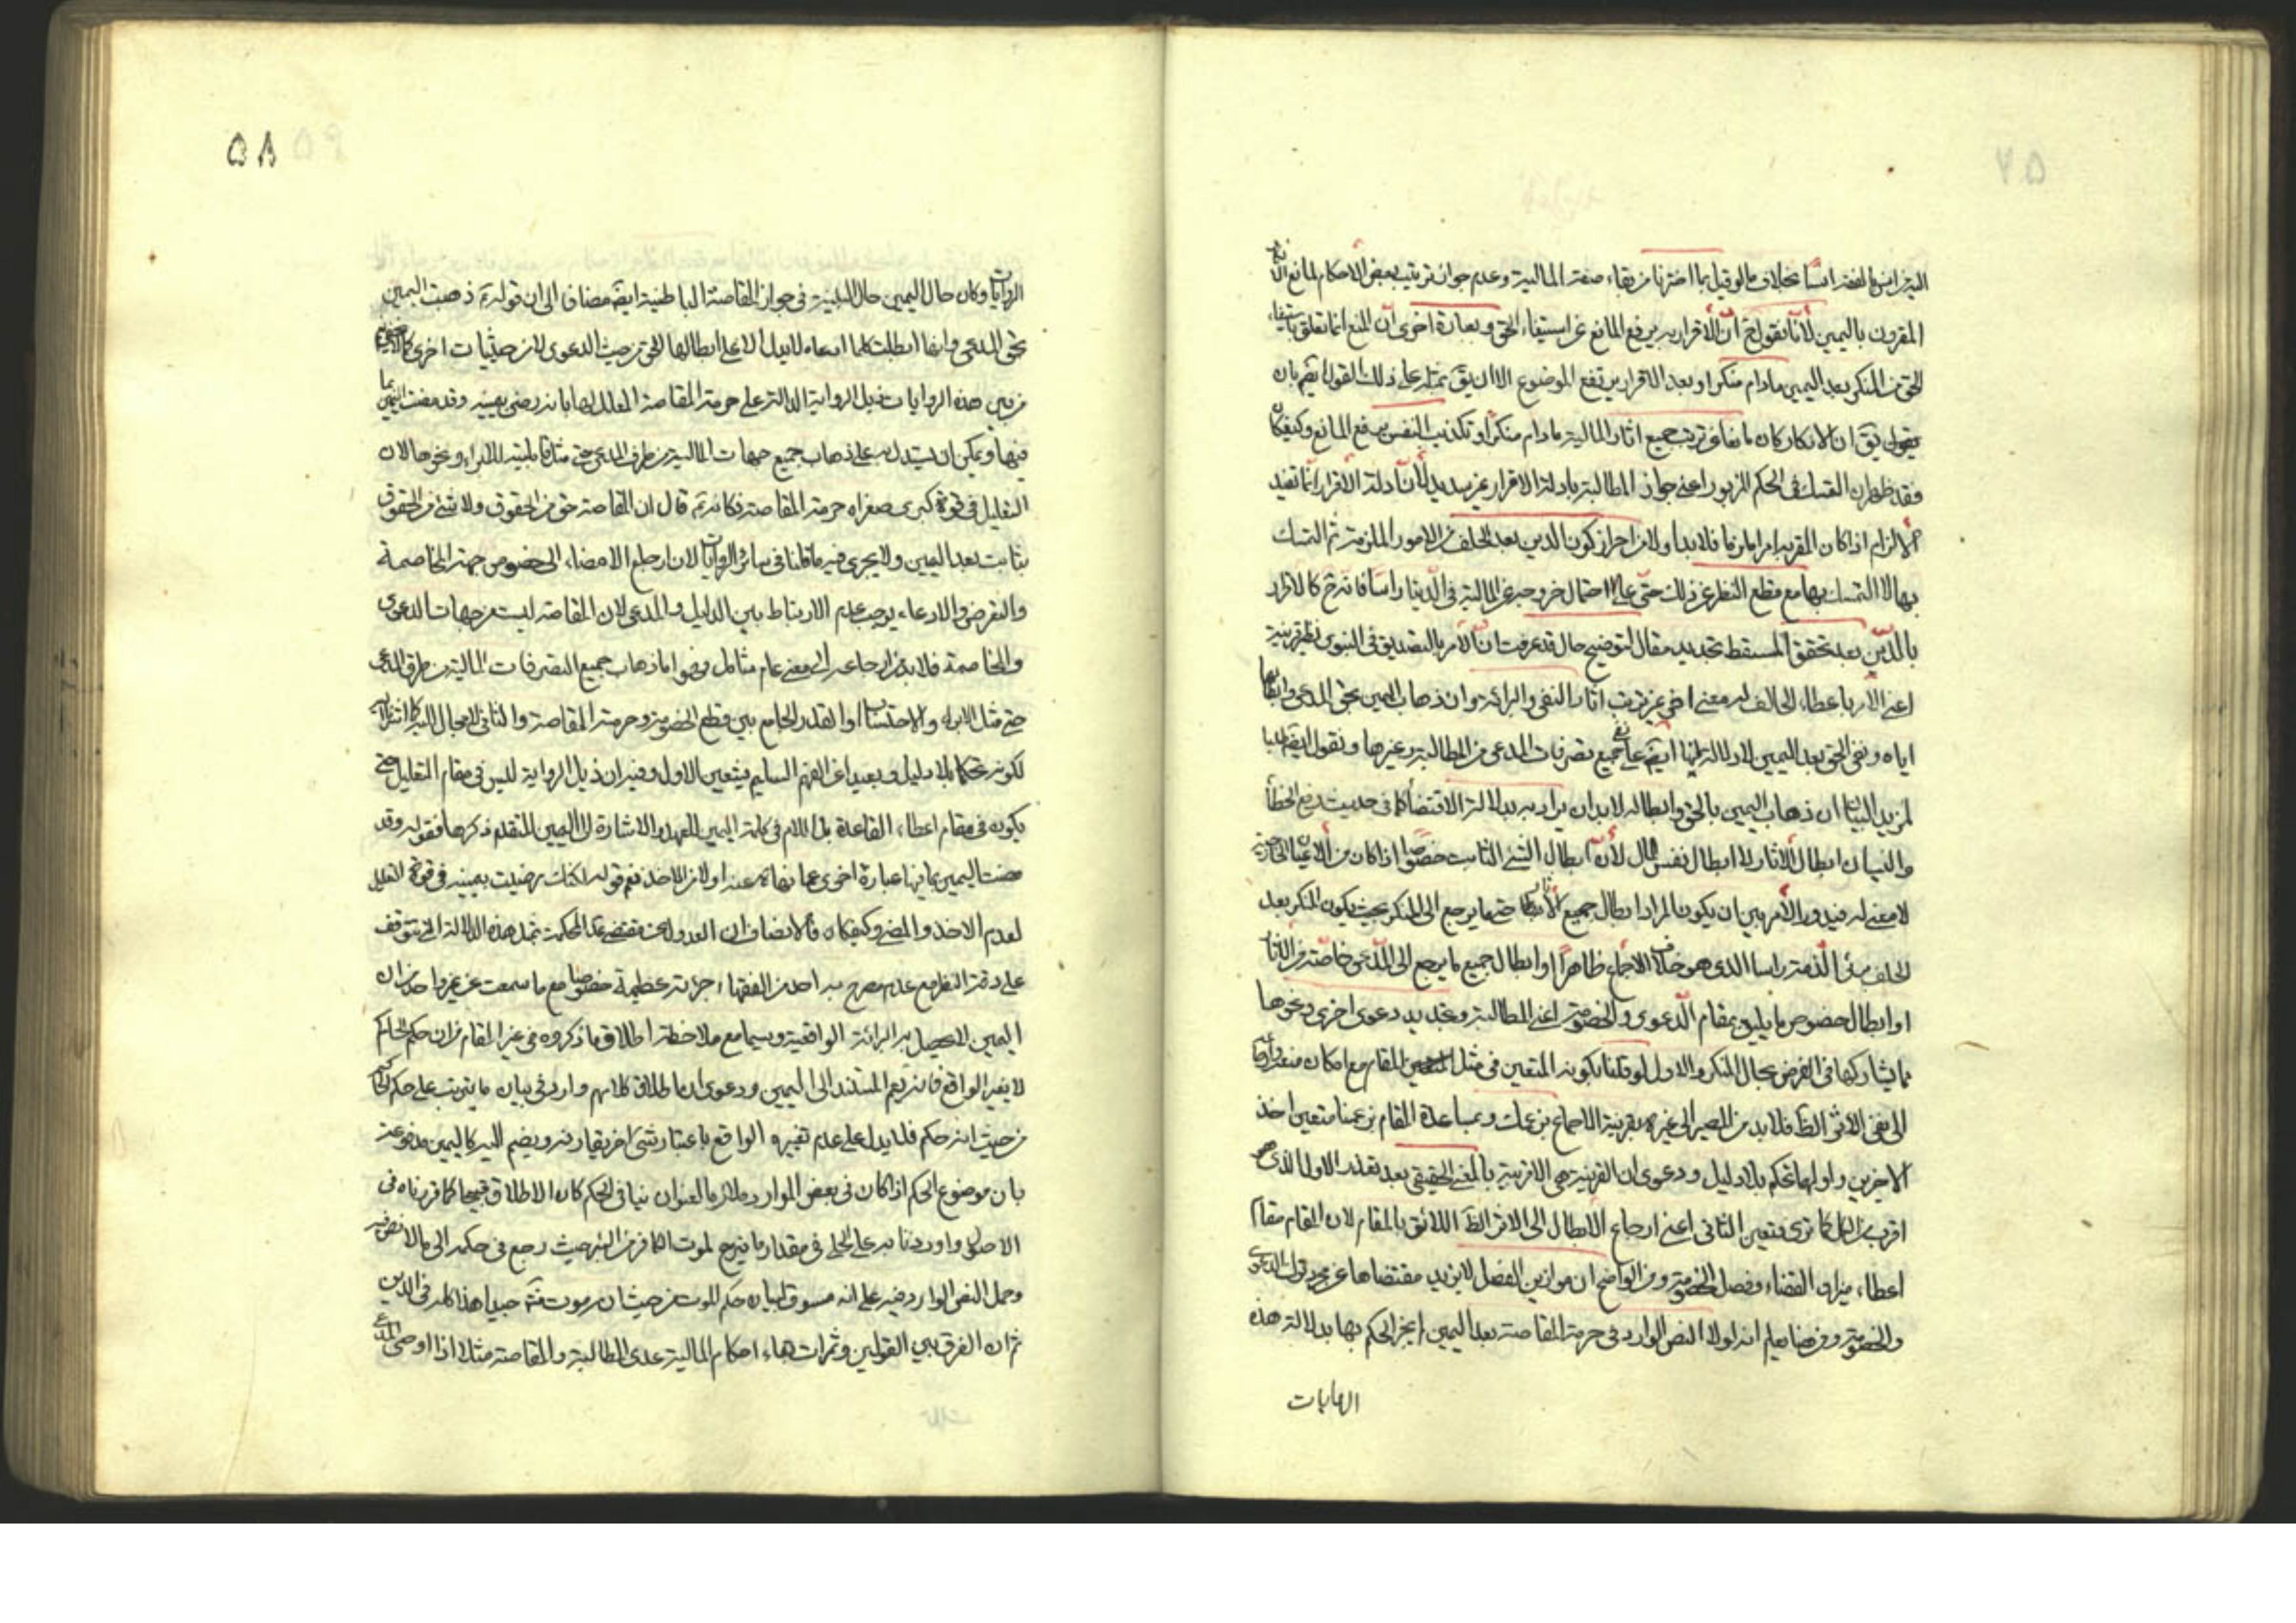 بخلاف ما لو قيل بما اخترنا من بقاء صفة المالية وعدم جواز ترتيب بعض الاحكام لمانع
المقرون باليمين لأنا نقول ح ان الأقرار به يرفع المانع عن استيفاء الحق وبعبارة اخرى ان المنع انما تعلق باستيفاء
الحق من المنكر بعد اليمين مادام منكرا وبعد الاقرار يرتفع الموضوع الا ان يق بمثله على ذلك القول ايضم بان
يق ان الانكار كان مانعا عن ترتيب جميع اثار المالية مادام منكرا وتكذيب النفس يرفع المانع وكيفكان
فقد ظهر ان التمسك في الحكم المزبور اعني جواز المطالبة بادلة الاقرار غير سديد لأن ادلة الاقرار انما تفيد
الالزام اذا كان المقر به امرا ملزما فلا بد اولا من احراز كون الدين بعد الحلف من الامور الملزمة ثم التمسك
بها لا التمسك بها مع قطع النظر عن ذلك حتى على احتمال خروجه عن المالية في الدنيا راسا فانه ح كالاقرار
بالدين بعد تحقق المسقط تجديد مقال لتوضيح حال قد عرفت ان الأمر بالتصديق في النبوى
اعني الأمر باعطاء الحالف له معنى اخر غير ترتيب اثار النفي والبرائة وان ذهاب اليمين بحق المدعي وابطالها
اياه ونفي الحق بعد اليمين لا دلالة لها ايضم على رفع جميع تصرفات المدعي من المطالبة وغيرها ونقول ايضم طلبا
لمزيد البيان ان ذهاب اليمين بالحق وابطاله لابد ان يراد به بدلالة الاقتضاء كما في حديث رفع الخطأ
والنسيان ابطال الأثار لا ابطال نفس المال لأن ابطال الشئ الثابت خصوصا اذا كان من الأعيان الخارجية
لا معنى له فيدور الأمر بين ان يكون المراد ابطال جميع الأثار حتى ما يرجع الى المنكر بحيث يكون المنكر بعد
الحلف برئ الذمة راسا الذى هو خلاف الاجماع ظاهرا او ابطال جميع ما يرجع الى المدعي خاصة من الأثار
او ابطال خصوص ما يليق بمقام الدعوى والخصومة اعني المطالبة وتجديد دعوى اخرى ونحوها
مما يشاركها في الغرض بحال المنكر والاول لو قلنا بكونه المتعين في مثل المقام مع امكان منعه
الى نفي الأثر الظ فلا بد من المصير الى غيره بقرينة الاجماع
الاخيرين واولهما تحكم بلا دليل ودعوى ان القرينة هي الاقربية بالمعنى الحقيقي بعد تعذر الاول الذى هو
اقرب من الكل كما ترى فتعين الثاني اعني ارجاع الابطال الى الاثر الظ اللائق بالمقام لان المقام مقام
اعطاء ميزان القضاء وفصل الخصومة ومن الواضح ان موازين الفصل لا يزيد مقتضاها عن مجرد ترك الدعوى
والخصومة ومن هنا يعلم انه لولا النص الوارد في حرمة المقاصة بعد اليمين لم يجز الحكم بها بدلالة هذه
الروايات
۵۸
الروايات وكان حال اليمين حال البينة في جواز المقاصة الباطنية ايضم مضاف الى ان قوله ع ذهبت اليمين
بحق المدعي وانها ابطلت كلما ادعاه لا يدل الا على ابطالها الحق من حيث الدعوى لا من حيثيات اخرى
من بين هذه الروايات ذيل الرواية الدالة على حرمة المقاصة المعلل لها بانه رضى بيمينه وقد مضت اليمين بما
فيها ويمكن ان يستدل به على ذهاب جميع جهات المالية من طرف المدعي حتى مثل قابلية الابراء ونحوها لان
التعليل في قوة كبرى صغراه حرمة المقاصة فكانه ع قال ان المقاصة حق من الحقوق ولا شئ من الحقوق
بثابت بعد اليمين ولا يجري فيه ما قلنا في سائر الروايات لان ارجاع الامضاء الى خصوص جهة المخاصمة
والتعرض والادعاء يوجب عدم الارتباط بين الدليل والمدعى لان المقاصة ليست من جهات الدعوى
والمخاصمة فلا بد من ارجاعه الى معنى عام شامل وهو اما ذهاب جميع التصرفات المالية من طرف المدعي
حتى مثل الابراء والاحتساب او القدر الجامع بين قطع الخصومة وحرمة المقاصة والثاني لا مجال
لكونه تحكما بلا دليل وبعيدا عن الفهم السليم يتعين الاول وفيه ان ذيل الرواية ليس في مقام التعليل حتى
يكون في مقام اعطاء القاعدة بل اللام في كلمة اليمين للعهد والاشارة الى اليمين المتقدم ذكرها فقوله وقد
مضت اليمين بما فيها عبارة اخرى عما نهاه عنه اولا من الاخذ نعم قوله لكنك رضيت بيمينه في قوة التعليل
لعدم الاخذ والمضى وكيفكان فالانصاف ان العدول عن مقتضى بمثل هذه الدلالة التي تتوقف
على دقة النظر مع عدم مصرح به احد من الفقهاء جرئة عظيمة خصوصا مع ما سمعت عن غير واحد من ان
اليمين لا يحصل به البرائة الواقعية وسيما مع ملاحظة اطلاق ما ذكروه في غير المقام من ان حكم الحاكم
لا يغير الواقع فانه يعم المستند الى اليمين ودعوى ان اطلاق كلامهم وارد في بيان ما يترتب على حكم الحاكم
من حيث انه حكم فلا يدل على عدم تغييره الواقع باعتبار شئ اخر يقارنه وينضم اليه كاليمين مدفوعة
بان موضوع الحكم اذا كان في بعض الموارد ملازما لعنوان ينافي الحكم كان الاطلاق قبيحا كما قررناه في
الاصول واوردنا به على الحلي في مقدار ما ينزح لموت الكافر من البئر حيث رجع في حكمه الى ما لا نص فيه
وحمل النص الوارد فيه على انه مسوق لبيان حكم الموت من حيث ان هذا كله في الدين
ثم ان الفرق بين القولين وثمرات بقاء احكام المالية عدى المطالبة والمقاصة مثلا اذا اوصى المدعي